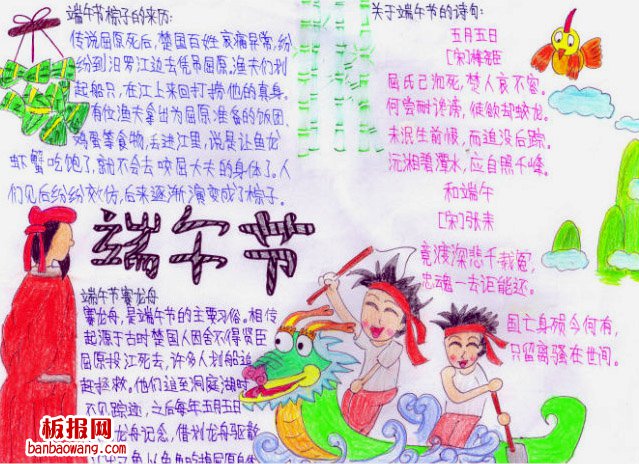 端午节粽子的来历:
传说屈原死后,楚国百姓哀痛异常,纷
纷到汨罗江边去凭吊屈原。渔夫们划
起船只,在江上来回打捞他的真身。
有位渔夫拿出为屈原准备的饭团、
鸡蛋等食物,丢进江里,说是让鱼龙
虾蟹吃饱了,就不会去咬屈大夫的身体了。人
们见后纷纷效仿,后来逐渐演变成了粽子。
端午节
端午节赛龙舟
赛龙舟,是端午节的主要习俗。相信
起源于古时楚国人因舍不得贤臣
屈原投江死去,许多人划船追
赶拯救。他们追至洞庭湖时
不见踪迹,之后每年五月五日
龙舟记念,借划龙舟驱散
江中之鱼,以免鱼吃掉屈原身体
关于端午节的诗句:
五月五日
[宋]梅尧臣
屈氏已沈死,楚人哀不容。
何尝耐谗谤,徒欲却蛟龙。
未泯生前恨,而追没后踪。
沅湘碧潭水,应自照千峰。
和端午
[宋]张耒
竞渡深悲千载冤,
忠魂一去讵能还。
国亡身殒今何有,
只留离骚在世间。
板报网
banbaowang.com